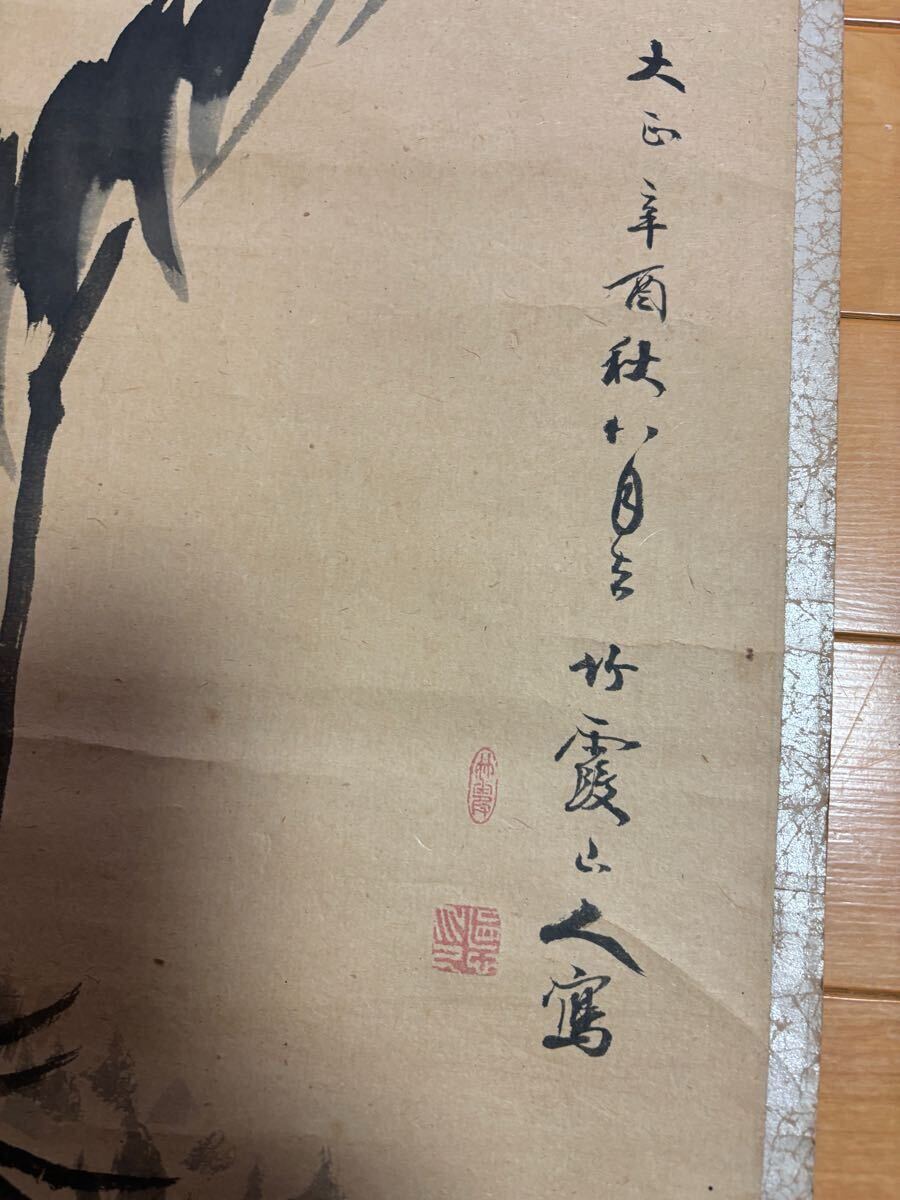 大正辛酉秋八月吉 竹霞山人寫
竹霞